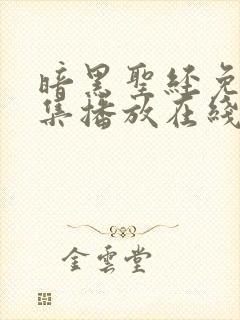 暗黑聖経免
集播放在綫
金雲堂